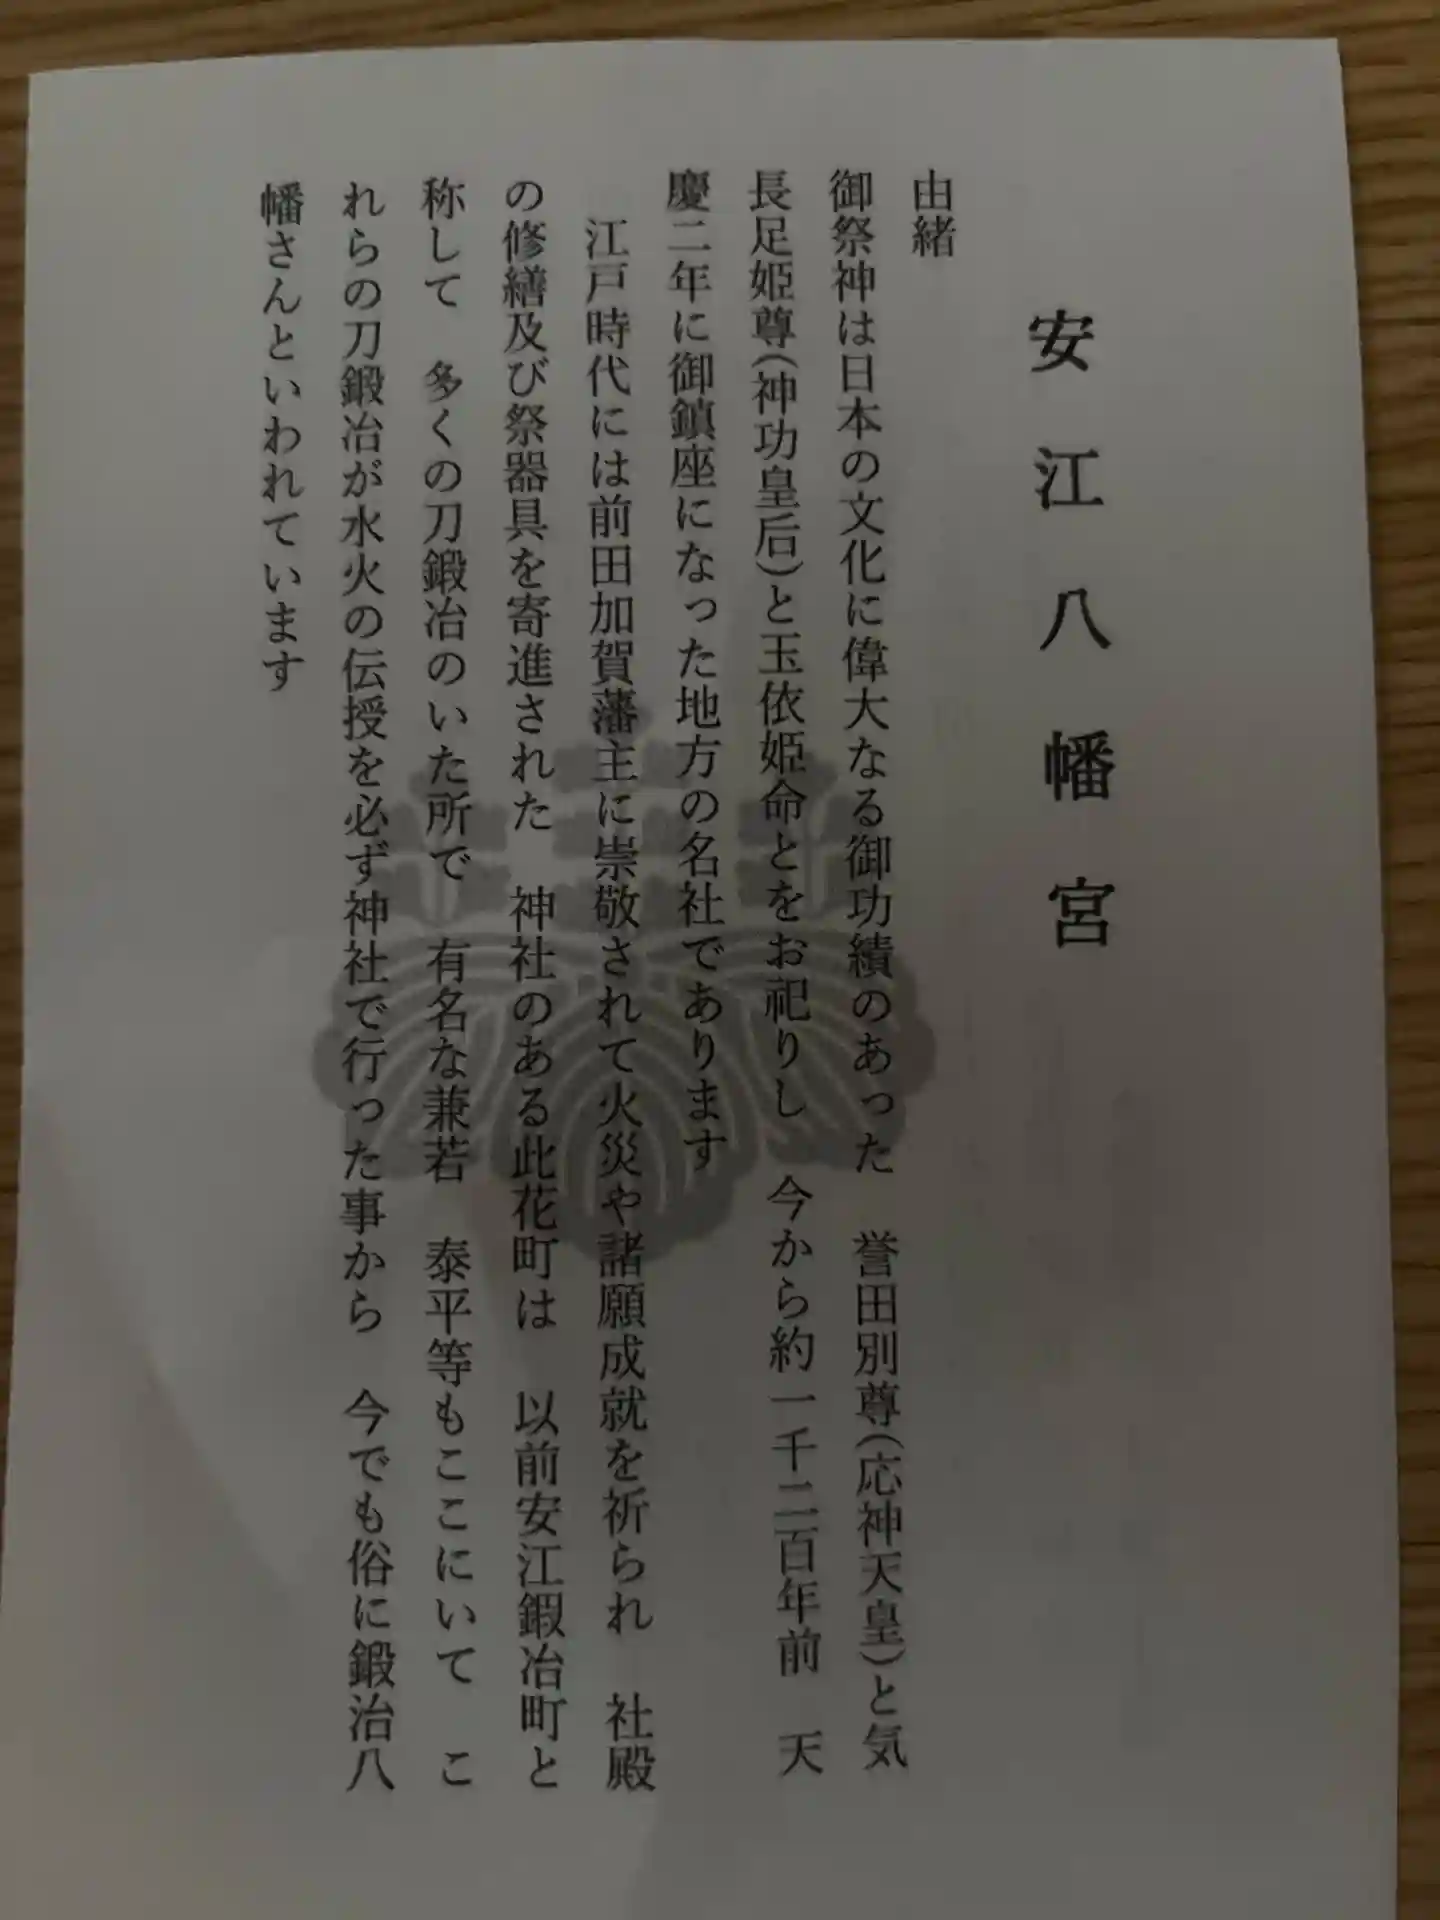 安江八幡宮
由緒
御祭神は日本の文化に偉大なる御功績のあった　誉田別尊(応神天皇)と気
長足姫尊(神功皇后)と玉依姫命とをお祀りし　今から約一千二百年前　天
慶二年に御鎮座になった地方の名社であります
　江戸時代には前田加賀藩主に崇敬されて火災や諸願成就を祈られ　社殿
の修繕及び祭器具を寄進された　神社のある此花町は　以前安江鍜冶町と
称して　多くの刀鍛冶のいた所で　有名な兼若　泰平等もここにいて　こ
れらの刀鍛冶が水火の伝授を必ず神社で行った事から　今でも俗に鍛治八
幡さんといわれています